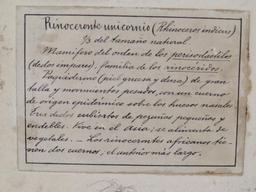 Rinoceronte unicornio (Rhinoceros indicus)
1/3 del tamaño natural.
Mamífero del orden de los perisodáctilos
(dedos impares), familia de los rinocéridos.
Paquidermo (piel gruesa y dura) de gran
talla y movimientos pesados, con un cuerno
de origen epidérmico sobre los huesos nasales
Tres dedos cubiertos de pezuñas pequeños y
endebles. Vive en el Asia; se alimenta de
vegetales. — Los rinocerontes africanos tie-
nen dos cuernos, el anterior más largo.